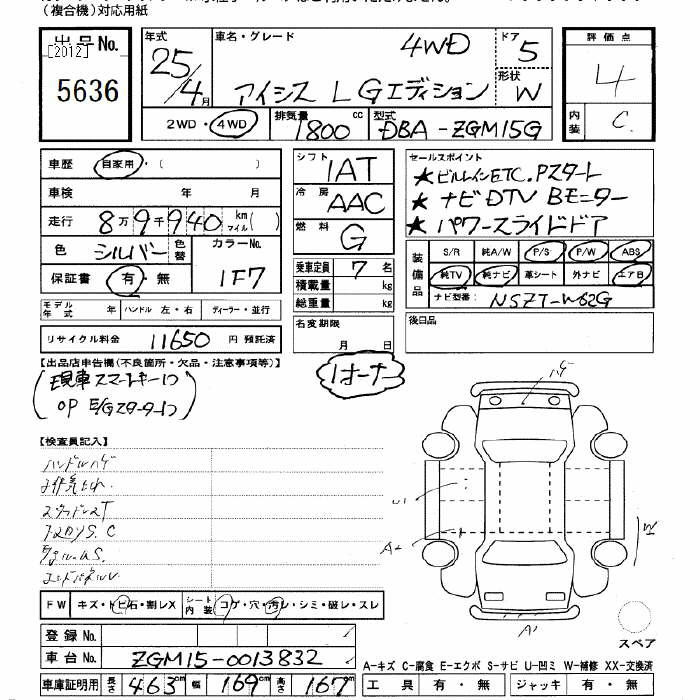 (複合機)対応用紙
出品No.
[2012]
5636
年式 車名・グレード 4WD ドア 5
25/4月 アイシス L Gエディション 形状 W
2WD・4WD 排気量 1800 cc 型式 DBA-ZGM15G
評価点
4
内装 C
車歴 自家用・( )
車検 年 月
走行 8万9千940 km マイル( )
色 シルバー 色替 カラーNo. 1F7
保証書 有・無
モデル年式 年 ハンドル 左・右 ディーラー・並行
リサイクル料金 11650 円 預託済
シフト IAT
冷房 AAC
燃料 G
乗車定員 7 名
積載量 kg
総重量 kg
名変期限
月 日
セールスポイント
★ビルトインETC.Pスタート
★ナビDTV Bモニター
★パワースライドドア
装備品 S/R 純A/W P/S P/W ABS
純TV 純ナビ 革シート 外ナビ エアB
ナビ型番 NSZT-W62G
後日品
【出品店申告欄(不良箇所・欠品・注意事項等)】
(現車スマートキー1コ
OP E/Gスターター1コ)
1オーナー
【検査員記入】
ハンドルハゲ
FW キズ・トビ石・割レX シート内装 コゲ・穴・汚レ・シミ・破レ・スレ
登録No.
車台No. ZGM15-0013832
車庫証明用 長さ 463 cm 幅 169 cm 高さ 167 cm
ハゲ
U1
A2
A1
W
スペア
A-キズ C-腐食 E-エクボ S-サビ U-凹ミ W-補修 XX-交換済
工具 有・無 ジャッキ 有・無